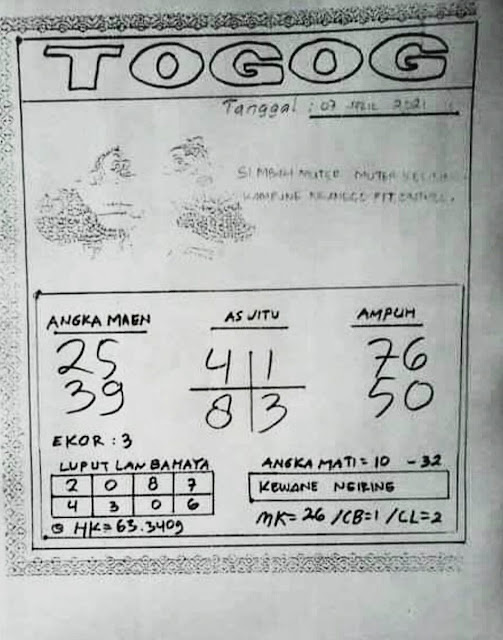 TOGOG
Tanggal : 07 APRIL 2021
SI MBAH MUTER MUTER
KAMPUNG
ANGKA MAEN
AS JITU
AMPUH
25
4 1
76
39
8 3
50
EKOR : 3
LUPUT LAN BAHAYA
ANGKA MATI = 10 - 32
2 0 8 7
KEWANE NGIRING
4 3 0 6
HK = 63.3409
MK = 26 / CB = 1 / CL = 2